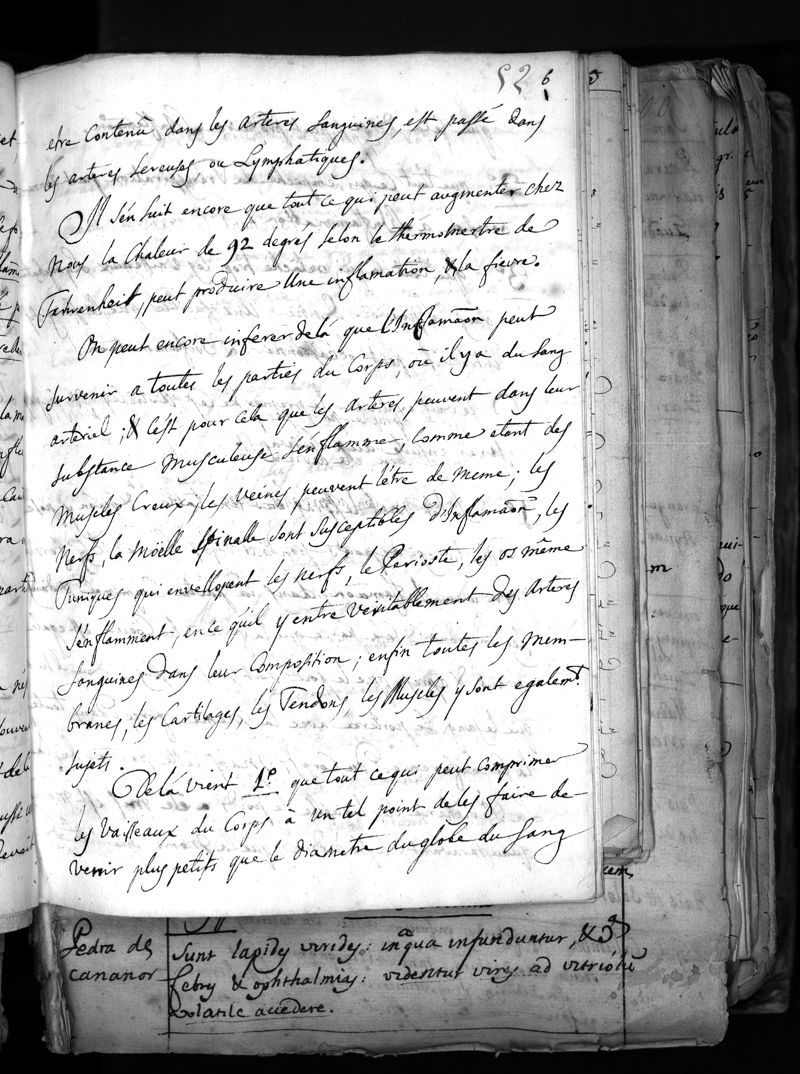 52 6
etre contenu dans les arteres sanguines, est passé dans
les arteres sereuses, ou Lymphatiques.
Il s'en suit encore que tout ce qui peut augmenter chez
nous la chaleur de 92 degrés selon le thermomertre de
Fahrenheit, peut produire une inflamation, & la fievre.
On peut encore inferer de là que l'Inflamaõn peut
survenir a toutes les parties du Corps, où il y a du sang
arteriel; & c'est pour cela que les arteres, peuvent dans leur
substance musculeuse s'enflamme, comme etant des
Muscles Creux; les veines peuvent l'être de meme; les
nerfs, la moëlle spinalle sont susceptibles d'Inflamaõn, les
Tuniques qui envellopent les nerfs, le Perioste, les os même
s'enflamment, en ce qu'il y entre veritablement des Arteres
sanguines dans leur Composition; enfin toutes les mem-
branes, les Cartilages, les Tendons, les Muscles y sont egalemt.
sujets.
De là vient 1.º que tout ce qui peut comprimer
les vaisseaux du Corps à un tel point de les faire de-
venir plus petits que le diametre du globe du sang
Pedra de
cananor
sunt lapides virides: in qua infunduntur, &
febres & ophthalmias: videntur vires ad vitriolũ
volatile accedere.